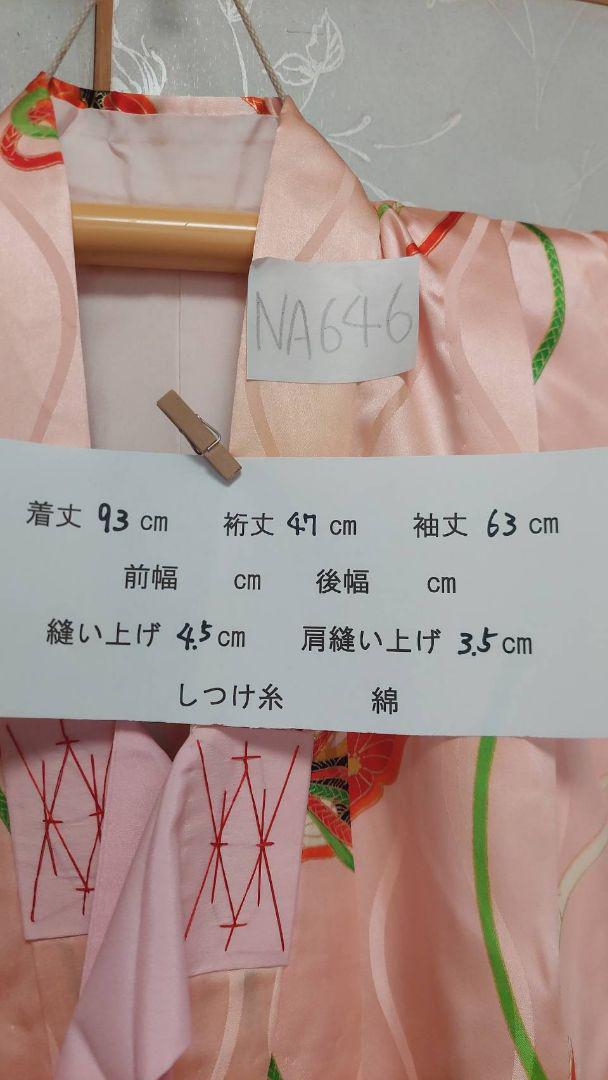 NA646
着丈 93 cm 裄丈 47 cm 袖丈 63 cm
前幅 cm 後幅 cm
縫い上げ 4.5 cm 肩縫い上げ 3.5 cm
しつけ糸 綿